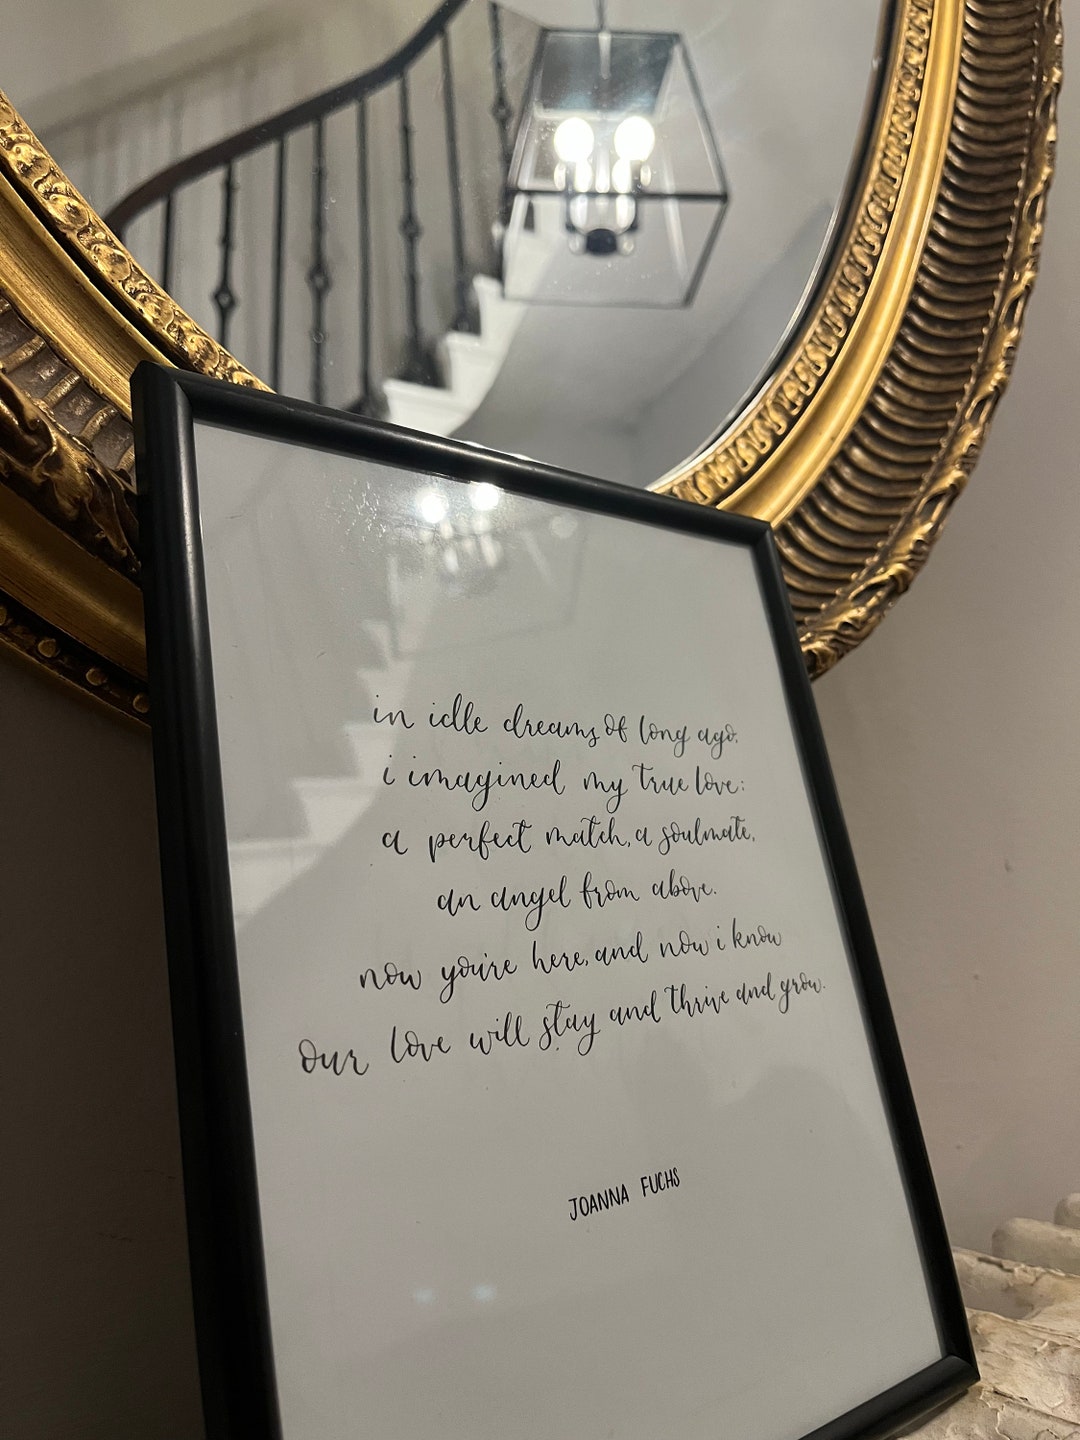 in idle dreams of long ago,
i imagined my true love;
a perfect match, a soulmate,
an angel from above.
now you're here, and now i know
our love will stay and thrive and grow.
JOANNA FUCHS